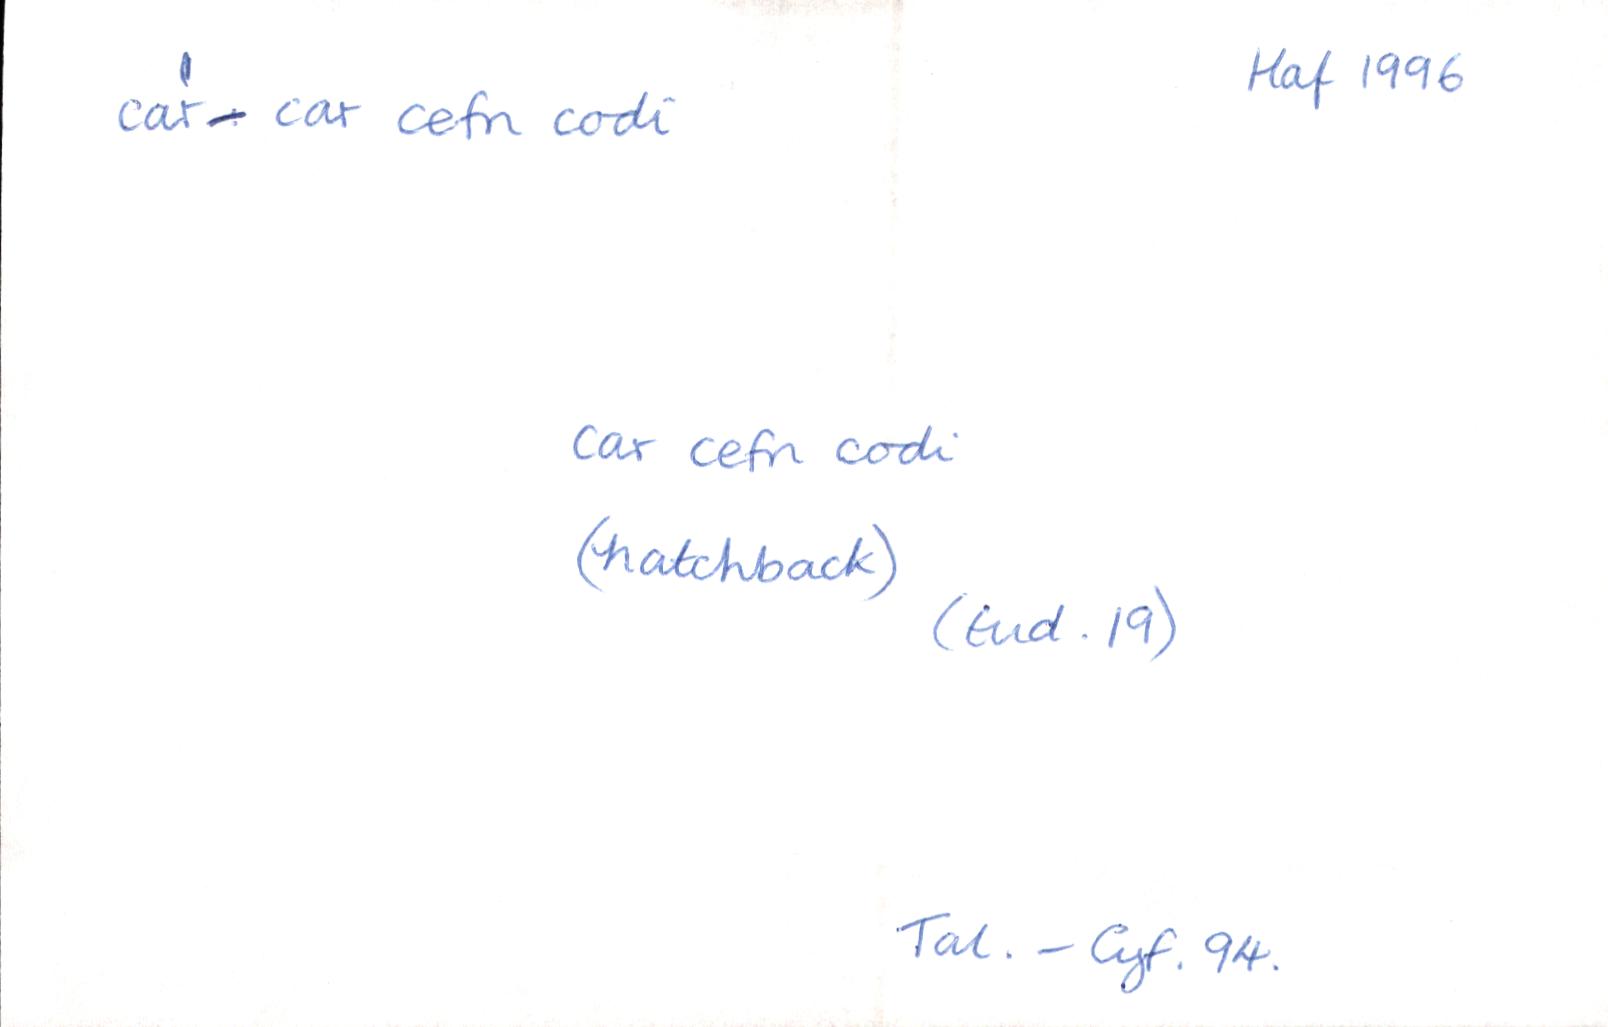 car¹ - car cefn codi
Haf 1996
car cefn codi
(hatchback)
(tud. 19)
Tal. - Cyf. 94.